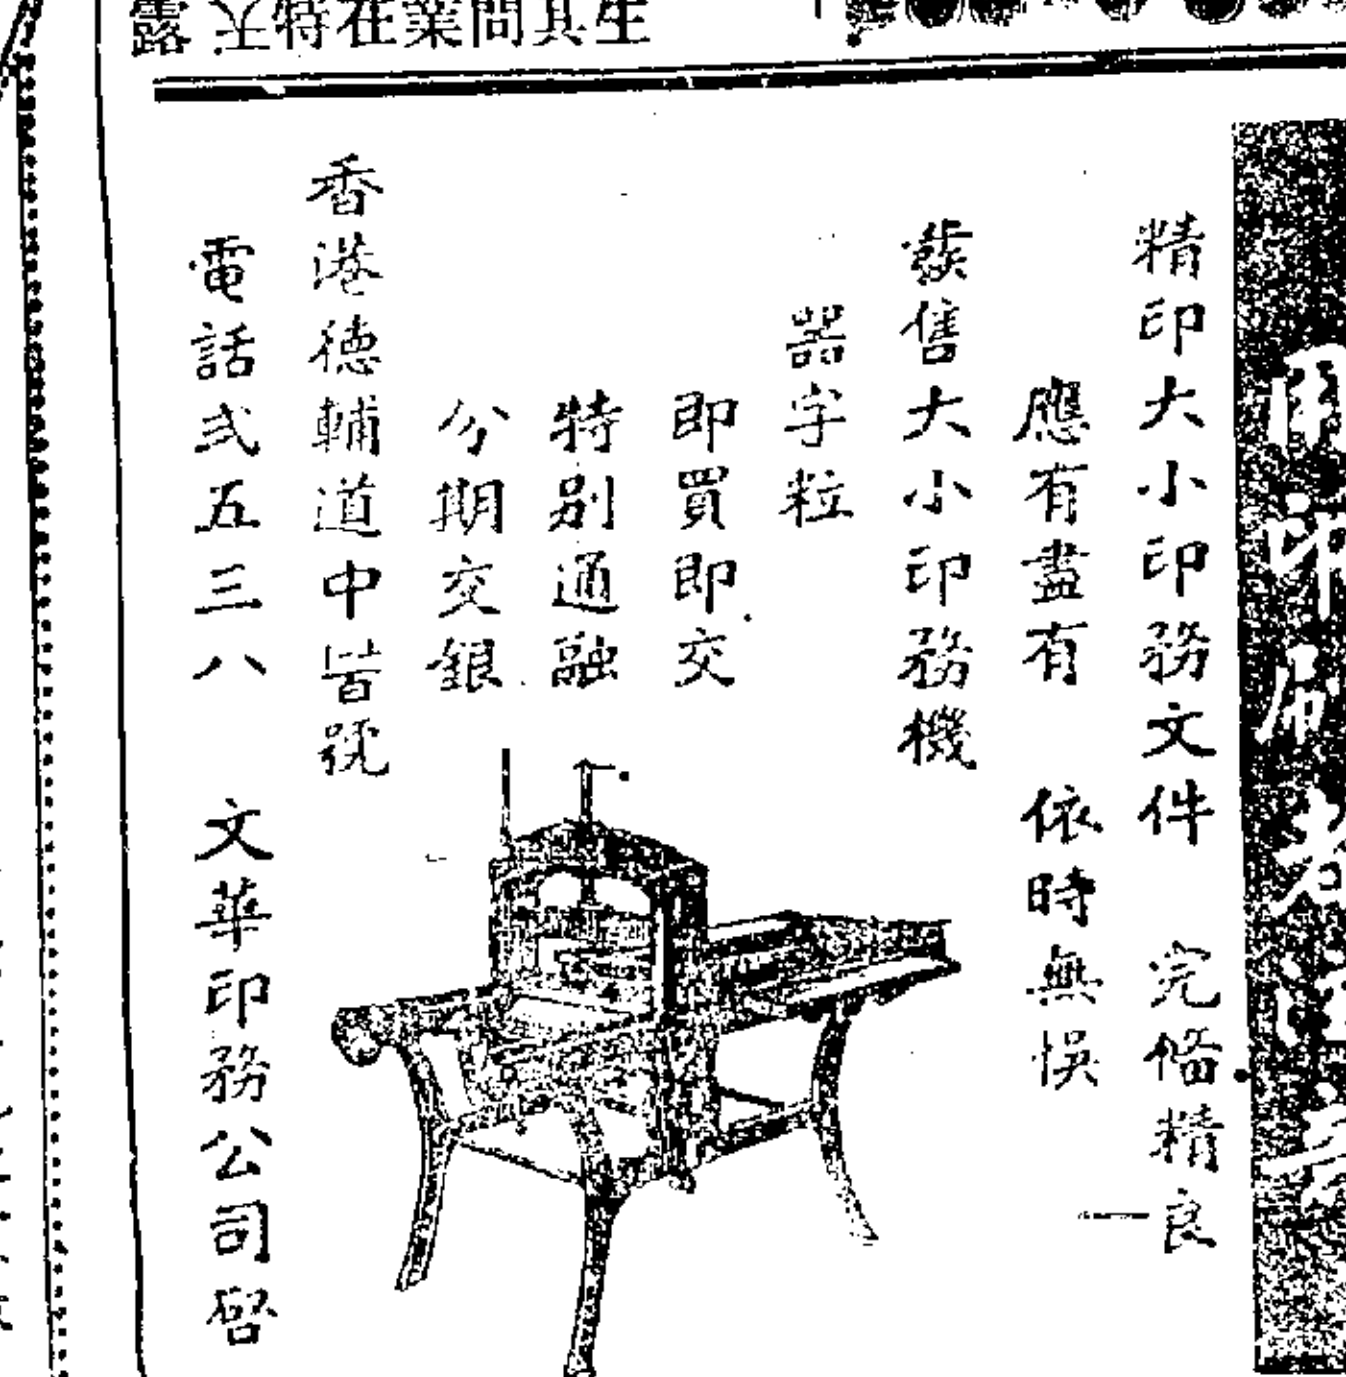 生其問業在特
精印大小印務文件 完俻精良
應有盡有 依時無悞
發售大小印務機
器字粒
即買即交
特別通融
分期交銀
香港德輔道中號
電話弍五三八 文華印務公司啓